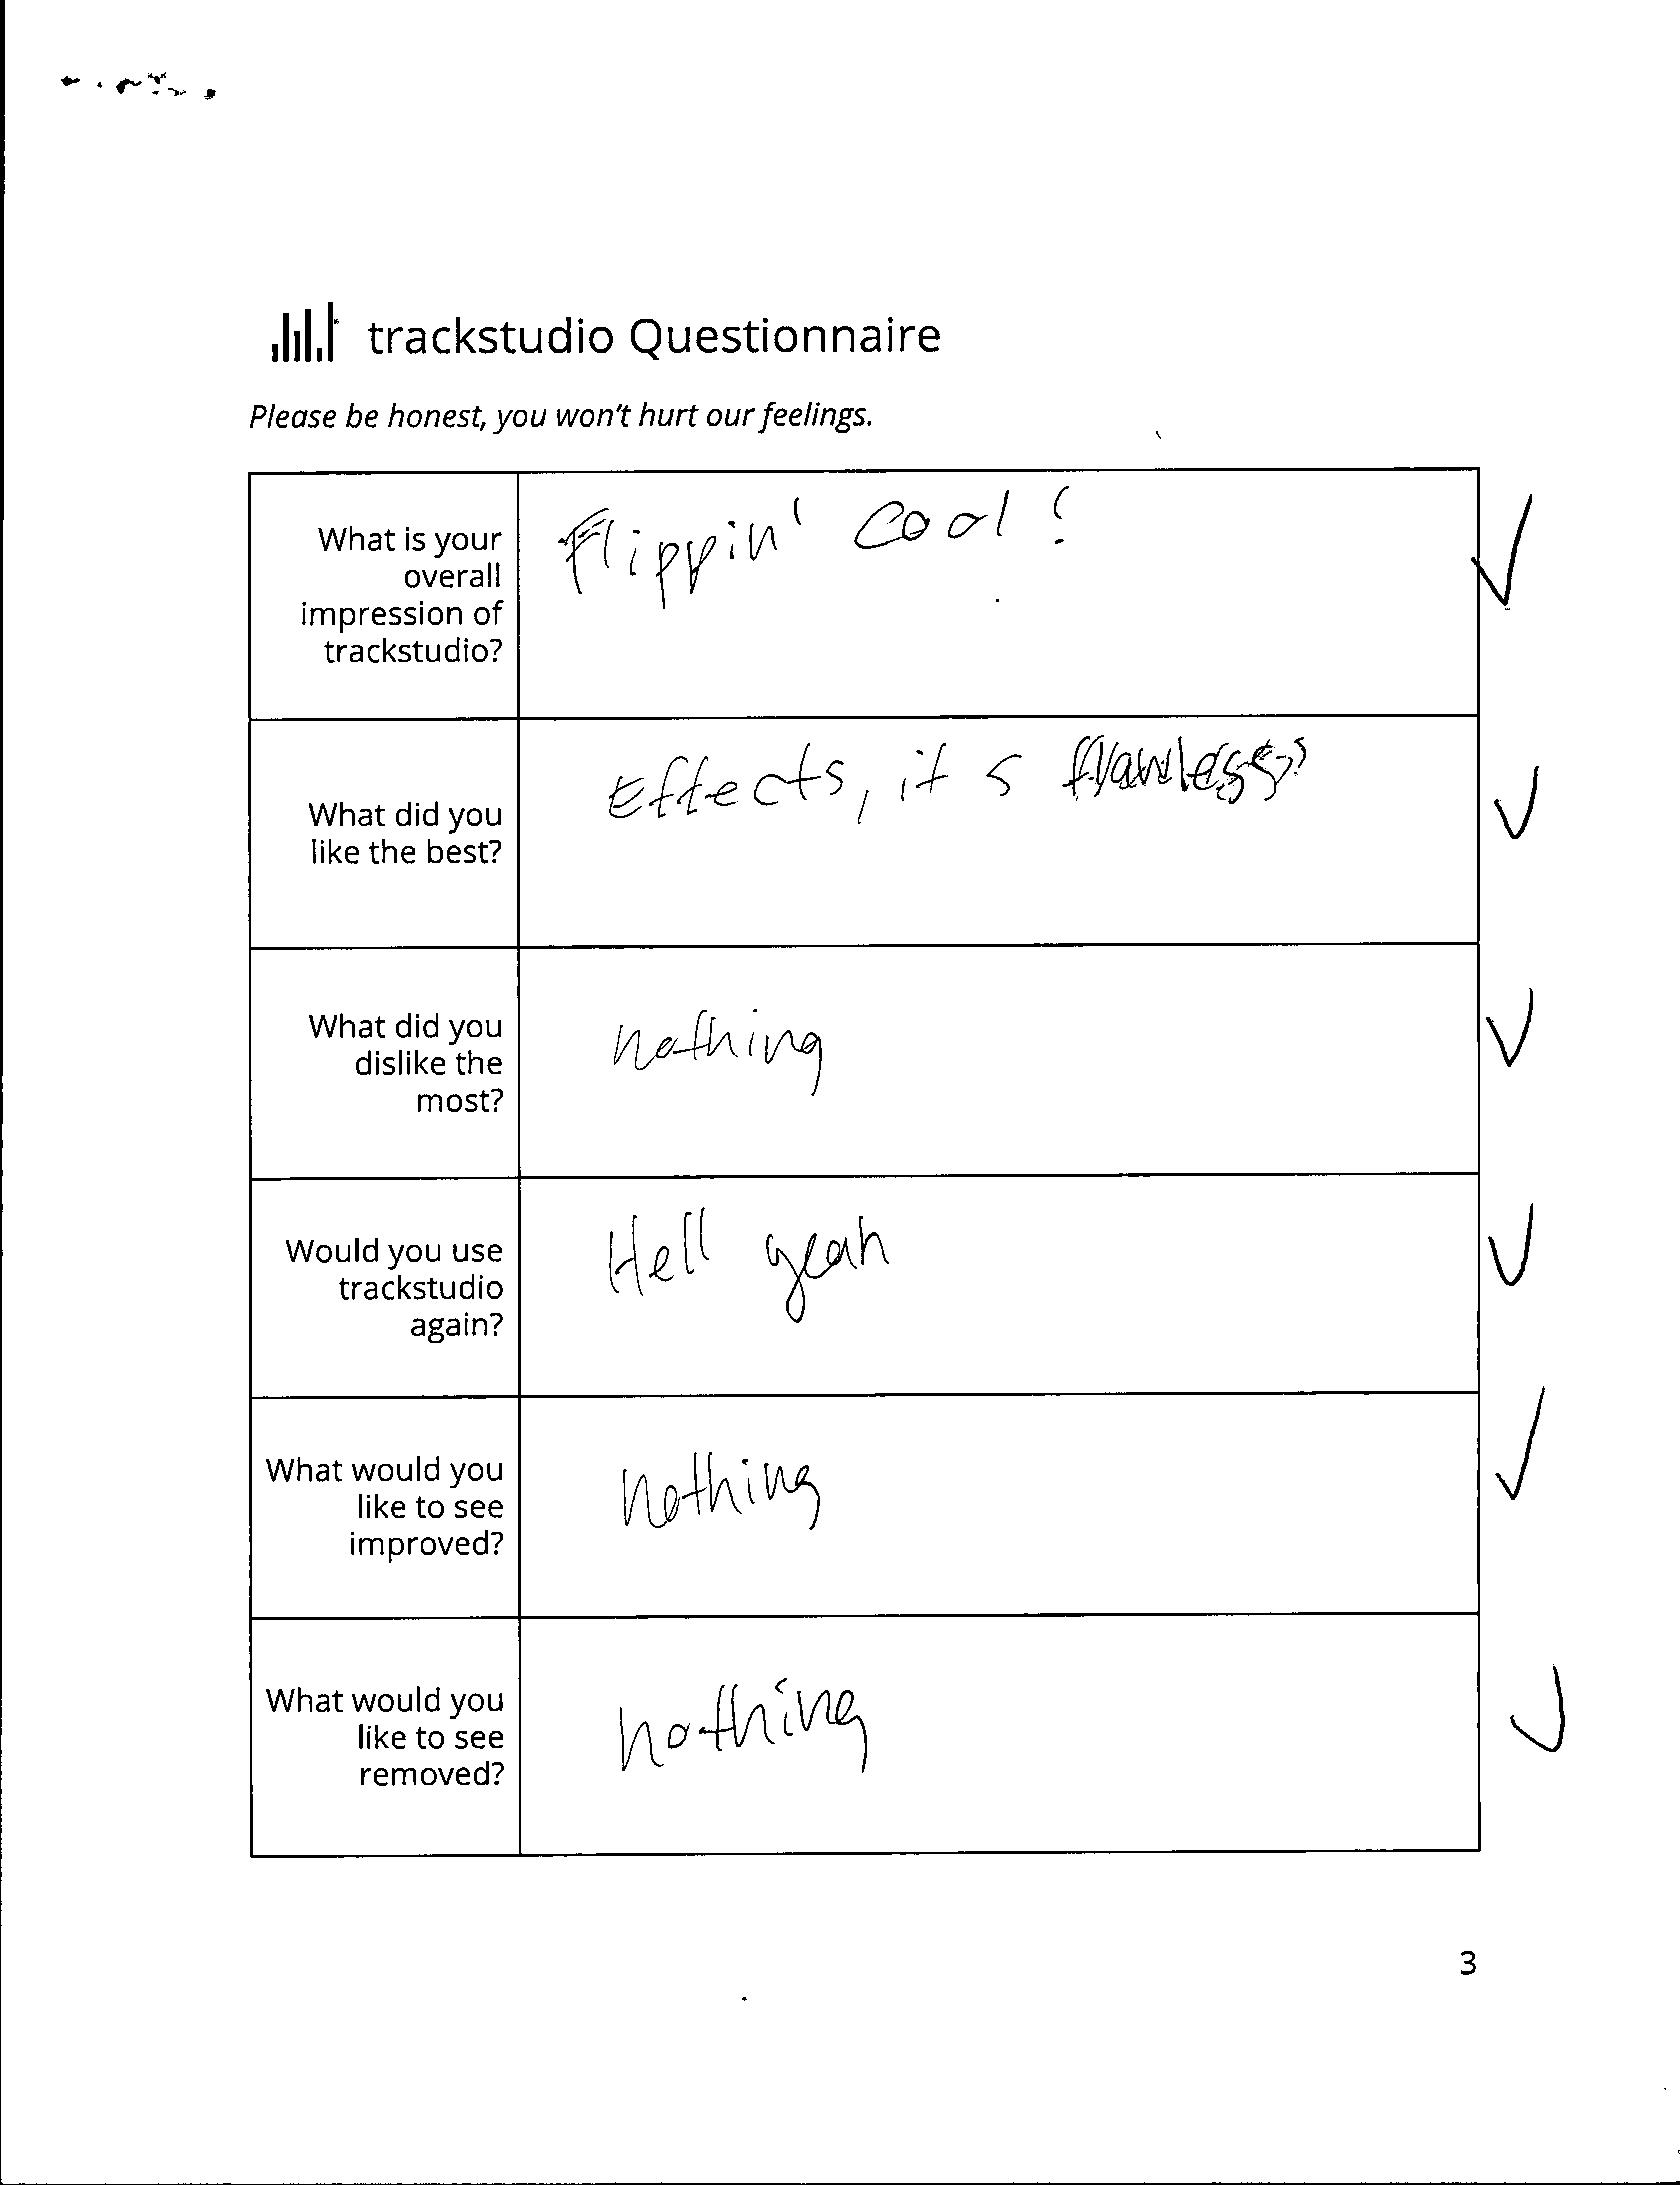 trackstudio Questionnaire
Please be honest, you won't hurt our feelings.
What is your
overall
impression of
trackstudio?
Flippin' Cool!
What did you
like the best?
Effects, it s flawless
What did you
dislike the
most?
nothing
Would you use
trackstudio
again?
Hell yeah
What would you
like to see
improved?
nothing
What would you
like to see
removed?
nothing
3